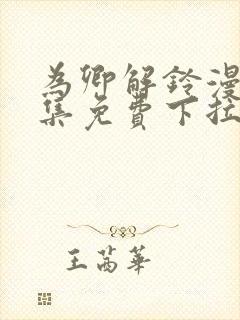 為卿解鈴漫
集免費下拉
王茜華